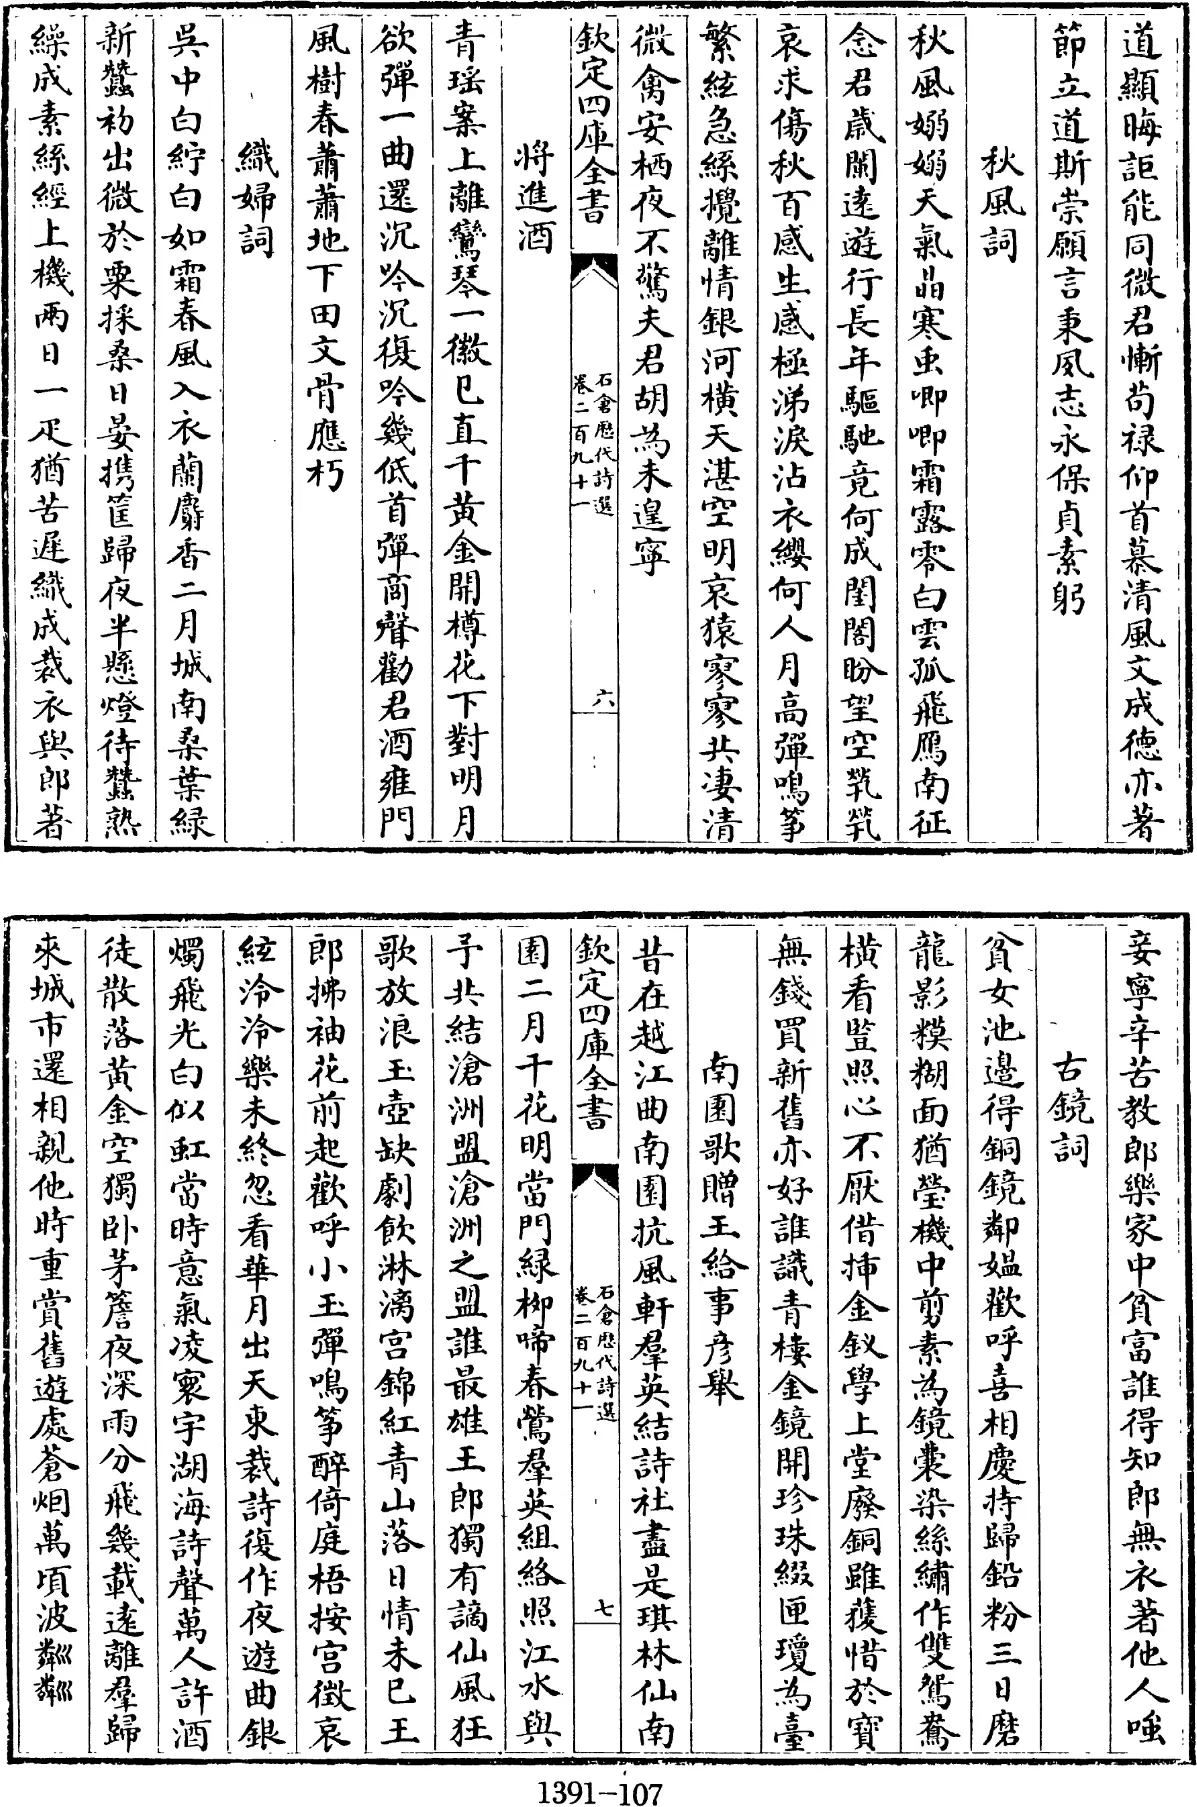 道顯晦詎能同微君慚苟祿仰首慕清風文成德亦著
節立道斯崇願言秉夙志永保貞素躬
秋風詞
秋風嫋嫋天氣晶寒虫唧唧霜露零白雲孤飛鴈南征
念君歲闌逺遊行長年驅馳竟何成閨閤盼望空煢煢
哀求傷秋百感生感極涕淚沾衣纓何人月高彈鳴筝
繁絃急絲攪離情銀河橫天湛空明哀猿寥寥共凄清
微禽安栖夜不驚夫君胡為未遑寧
欽定四庫全書
石倉歷代詩選
卷二百九十一
六
將進酒
青瑶案上離鸞琴一徽已直千黃金開樽花下對明月
欲彈一曲還沉吟沉復吟幾低首彈商聲勸君酒雍門
風樹春蕭蕭地下田文骨應朽
織婦詞
吳中白紵白如霜春風入衣蘭麝香二月城南桑葉緑
新蠶初出微於粟採桑日晏携筐歸夜半懸燈待蠶熟
繰成素絲經上機兩日一疋猶苦遲織成裁衣與郎著
妾寧辛苦教郎樂家中貧富誰得知郎無衣著他人嗤
古鏡詞
貧女池邉得銅鏡鄰媪歡呼喜相慶持歸鉛粉三日磨
龍影糢糊面猶瑩機中剪素為鏡囊染絲繡作雙鴛鴦
橫看豎照心不厭借揷金釵學上堂廢銅雖獲惜於寶
無錢買新舊亦好誰識青樓金鏡開珍珠綴匣瓊為臺
南園歌贈王給事彦舉
昔在越江曲南園抗風軒羣英結詩社盡是琪林仙南
欽定四庫全書
石倉歷代詩選
卷二百九十一
七
園二月千花明當門緑栁啼春鶯羣英組絡照江水與
予共結滄洲盟滄洲之盟誰最雄王郎獨有謫仙風狂
歌放浪玉壺缺劇飲淋漓宫錦紅青山落日情未已王
郎拂袖花前起歡呼小玉彈鳴筝醉倚庭梧按宫徵哀
絃泠泠樂未終忽看華月出天東裁詩復作夜遊曲銀
燭飛光白似虹當時意氣凌寰宇湖海詩聲萬人許酒
徒散落黃金空獨卧茅簷夜深雨分飛幾載逺離羣歸
來城市還相親他時重賞舊遊處蒼烟萬頃波粼粼
1391-107